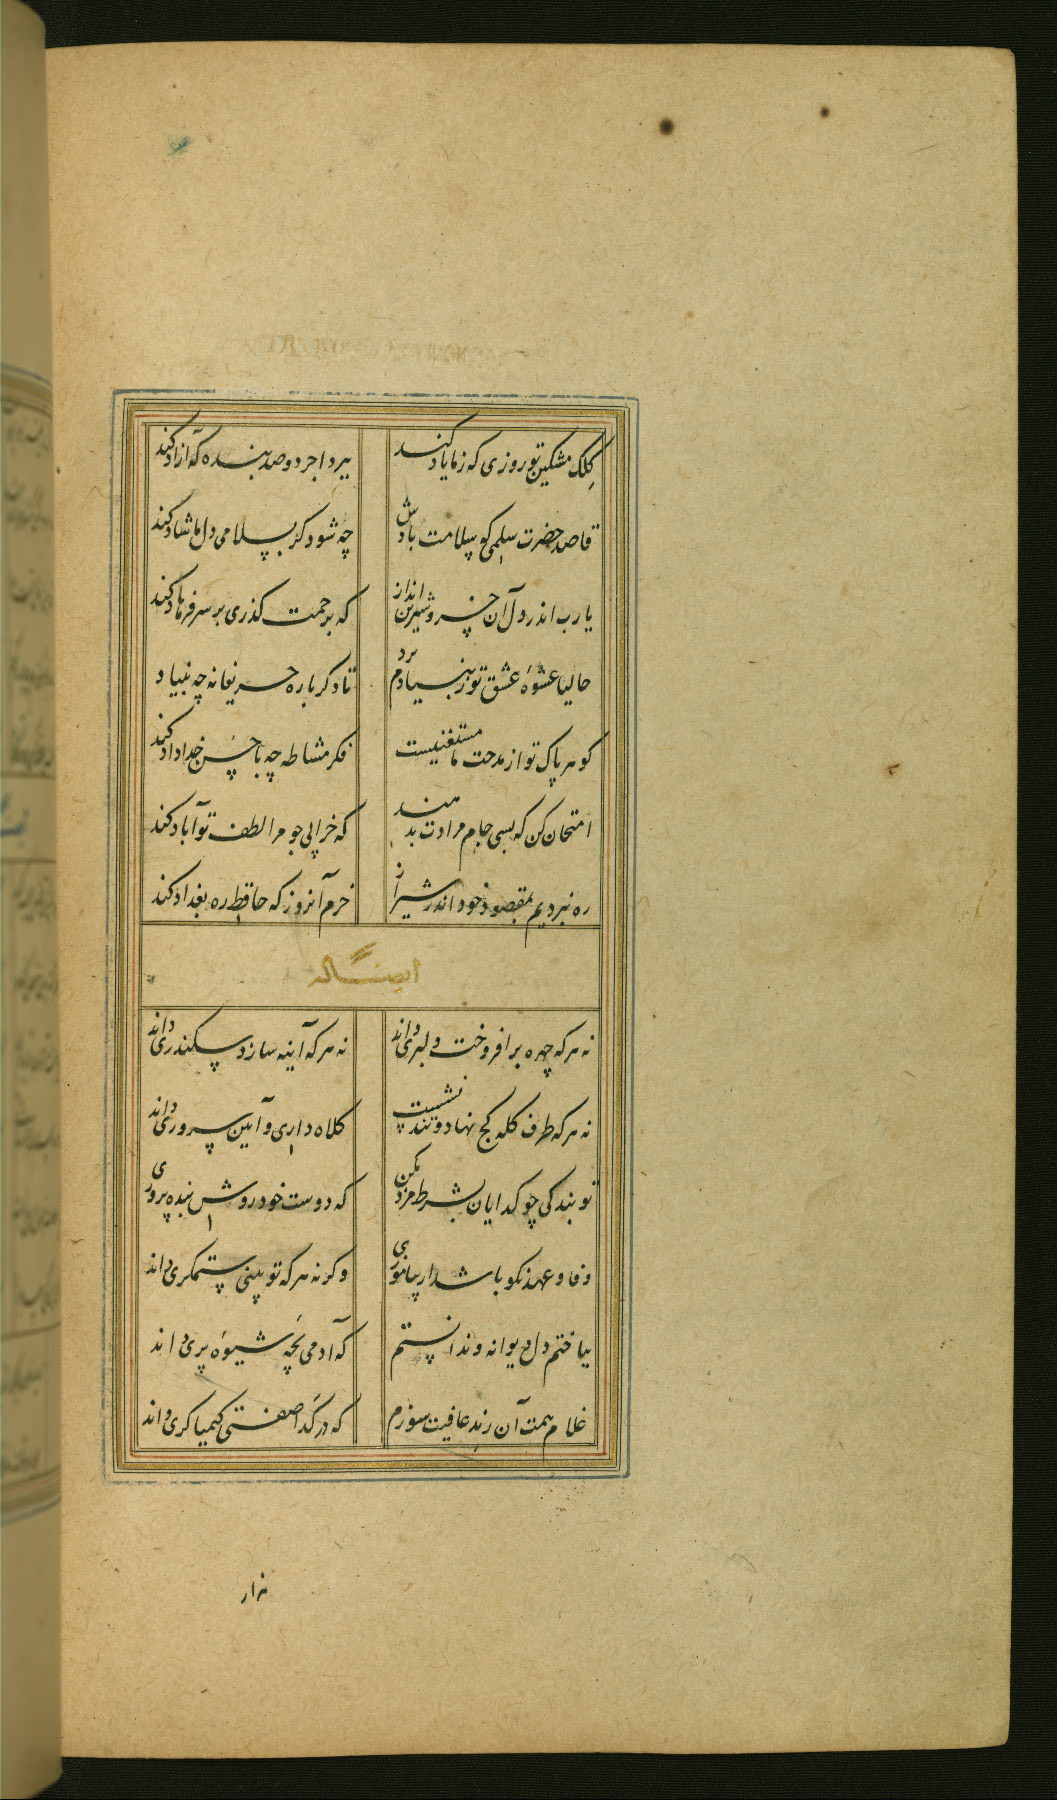 کلک مشکین تو روزی که ز ما یاد کند
ببرد اجر دو صد بنده که آزاد کند
قاصد حضرت سلمی که سلامت بادش
چه شود کر بسلامی دل ما شاد کند
یا رب اندر دل آن خسرو شیرین انداز
که برحمت کذری بر سر فرهاد کند
حالیا عشوهٔ عشق تو ز بنیادم برد
تا دکر باره حریفانه چه بنیاد
کوهر پاک تو از مدحت ما مستغنیست
فکر مشاطه چه با حسن خداداد کند
امتحان کن که بسی جام مرادت بدهند
که خرابی چو مرا لطف تو آباد کند
ره نبردیم بمقصود خود اندر شیراز
خرم آنروز که حافظ ره بغداد کند
ایضاً له
نه هر که چهره برافروخت دلبری داند
نه هر که آینه سازد سکندری داند
نه هر که طرف کله کج نهاد و تند نشست
کلاه داری و آیین سروری داند
تو بندکی چو کدایان بشرط مزد مکن
که دوست خود روش بنده پروری
وفا و عهد نکو باشد ار بیاموزی
وکرنه هر که تو بینی ستمکری داند
بباختم دل دیوانه و ندانستم
که آدمی بچهٔ شیوهٔ پری داند
غلام همت آن رند عافیت سوزم
که در کدا صفتی کیمیاکری داند
هزار